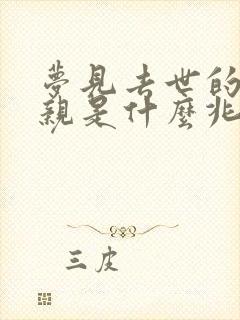 夢見去世的
親是什麼兆
三皮